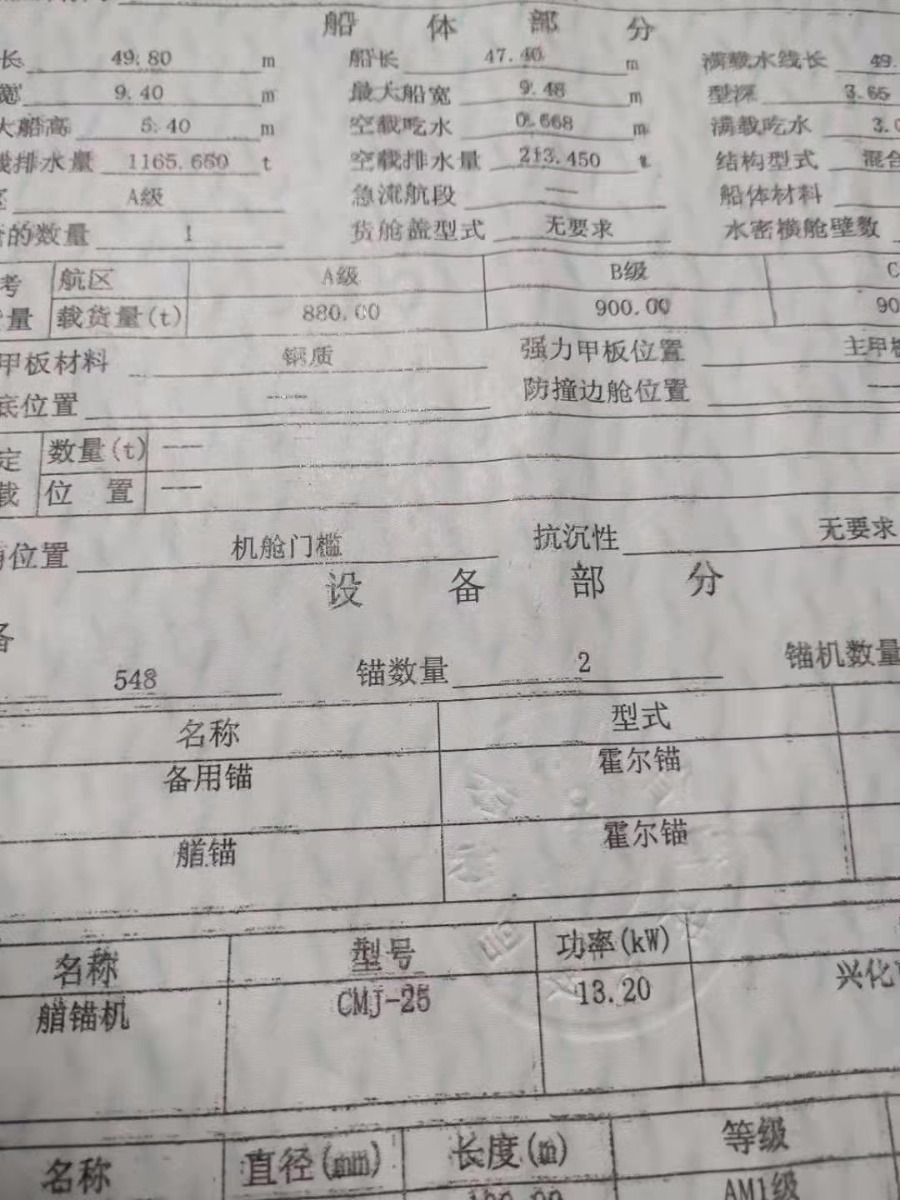 船 体 部 分
长 49.80 m 船长 47.40 m 满载水线长 49.
宽 9.40 m 最大船宽 9.48 m 型深 3.65
大船高 5.40 m 空载吃水 0.668 m 满载吃水 3.0
载排水量 1165.650 t 空载排水量 213.450 t 结构型式 混合
A级 急流航段 — 船体材料
的数量 1 货舱盖型式 无要求 水密横舱壁数
考 航区 A级 B级 C
量 载货量(t) 880.00 900.00 90
甲板材料 钢质 强力甲板位置 主甲板
底位置 --- 防撞边舱位置 ---
定 数量(t) ---
载 位 置 ---
位置 机舱门槛 抗沉性 无要求
设 备 部 分
备
548 锚数量 2 锚机数量
名称 型式
备用锚 霍尔锚
艏锚 霍尔锚
名称 型号 功率(kW)
艏锚机 CMJ-25 13.20 兴化
名称 直径(mm) 长度(m) 等级
AM1级